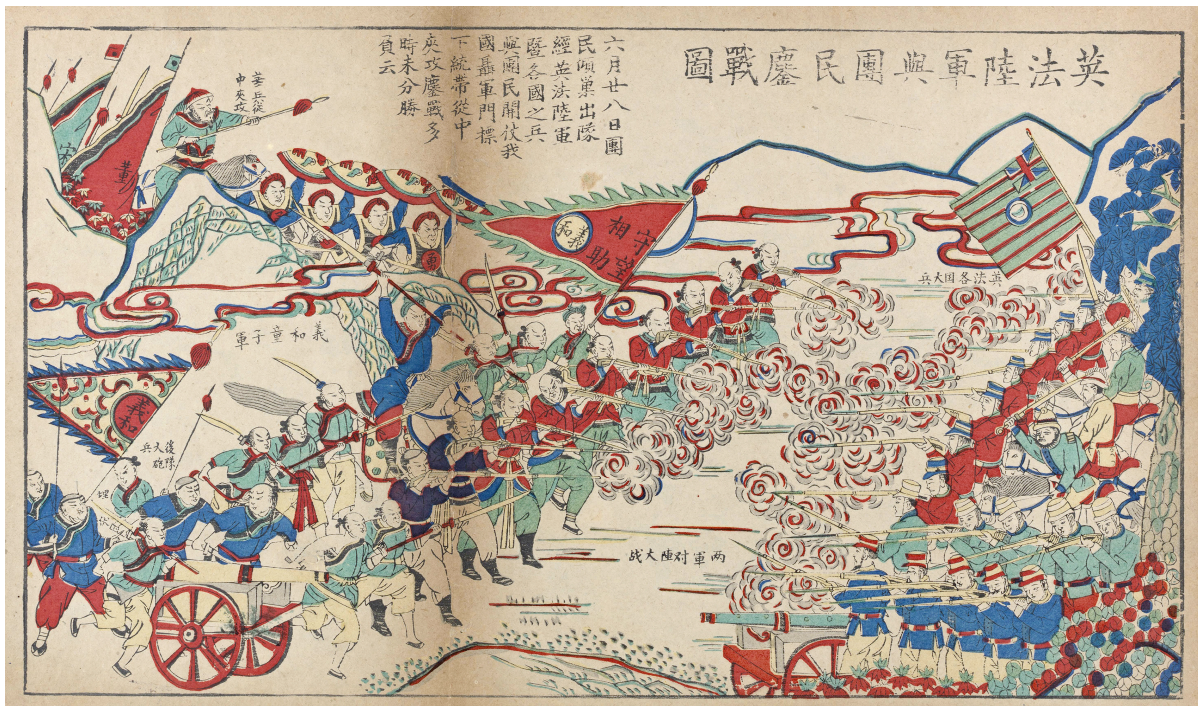 英法陸軍與團民鏖戰圖
六月廿八日團
民傾巢出隊
經英法陸軍
暨各國之兵
與團民開仗我
國聶軍門標
下統帶從中
夾攻鏖戰多
時未分勝
負云
董兵從
中夾攻
宋
守望
相助
義和
英法各国大兵
義和童子軍
義和
後隊
大砲
兵
两軍对陣大战